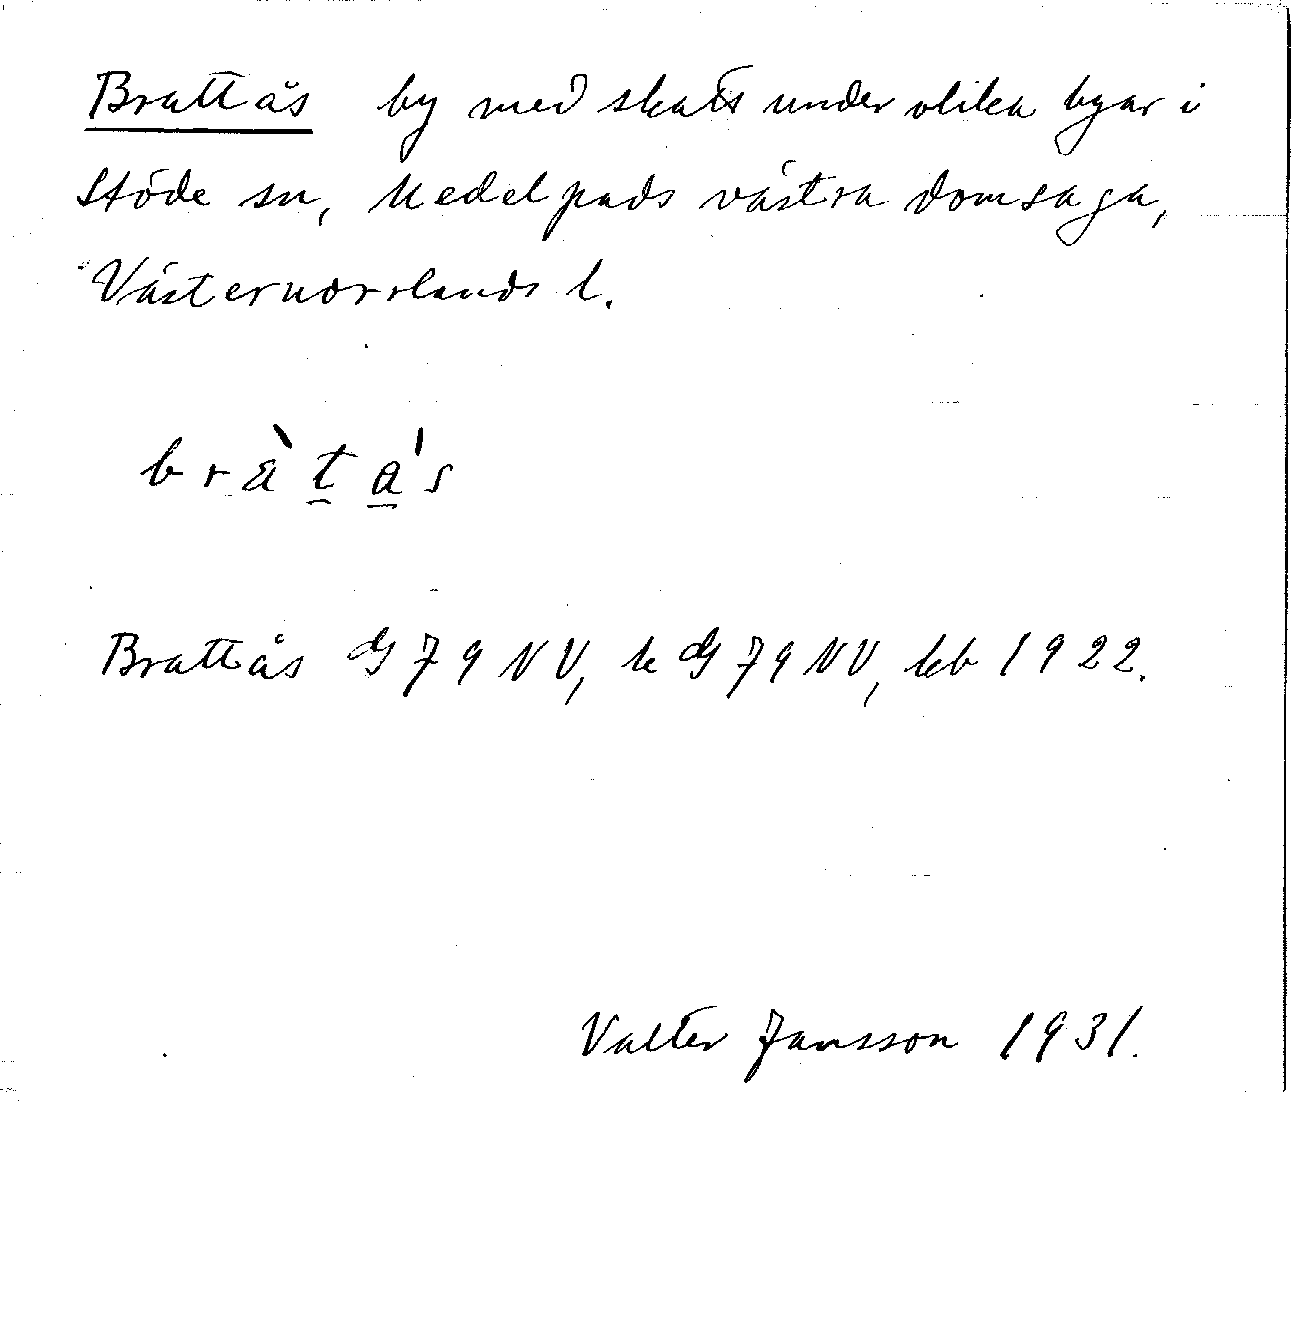 Brattås by med skatt under olika byar i
Stöde sn, Medelpads västra domsaga,
Västernorrlands l.
bràta's
Brattås G 79 NV, k G 79 NV, kb 1922.
Valter Jansson 1931.